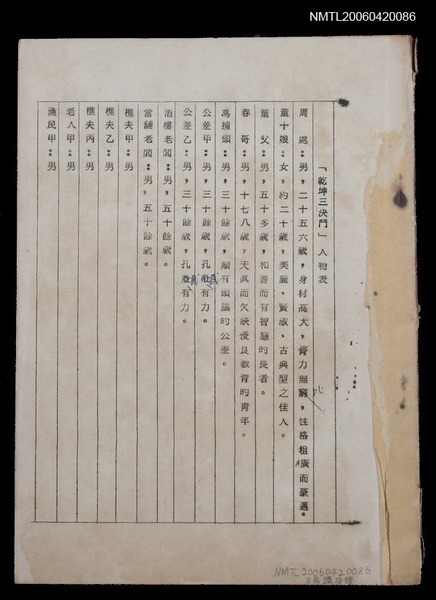 NMTL20060420086
「乾坤三決鬥」人物表
周處：男，二十五六歲，身材高大，膂力無窮，性格粗廣而豪邁。
董十娘：女，約二十歲，美麗、賢淑、古典型之佳人。
董父：男，五十多歲，和善而有智慧的長者。
春哥：男，十七八歲，天真而欠缺優良教育的青年。
馮捕頭：男，三十餘歲，頗有頭腦的公差。
公差甲：男，三十餘歲，孔武有力。
公差乙：男，三十餘歲，孔武有力。
酒樓老闆：男，五十餘歲。
當舖老闆：男，五十餘歲。
樵夫甲：男
樵夫乙：男
樵夫丙：男
老人甲：男
漁民甲：男
NMTL20060420086